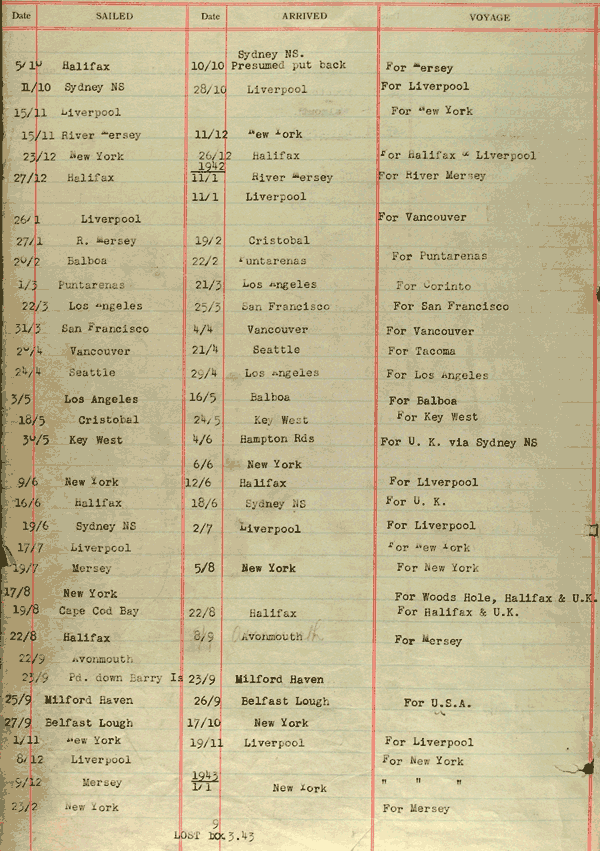 Date SAILED Date ARRIVED VOYAGE
Sydney NS.
5/10 Halifax 10/10 Presumed put back For Mersey
11/10 Sydney NS 28/10 Liverpool For Liverpool
15/11 Liverpool For New York
15/11 River Mersey 11/12 New York
23/12 New York 26/12 Halifax For Halifax & Liverpool
1942
27/12 Halifax 11/1 River Mersey For River Mersey
11/1 Liverpool
26/1 Liverpool For Vancouver
27/1 R. Mersey 19/2 Cristobal
20/2 Balboa 22/2 Puntarenas For Puntarenas
1/3 Puntarenas 21/3 Los Angeles For Corinto
22/3 Los Angeles 25/3 San Francisco For San Francisco
31/3 San Francisco 4/4 Vancouver For Vancouver
20/4 Vancouver 21/4 Seattle For Tacoma
24/4 Seattle 29/4 Los Angeles For Los Angeles
3/5 Los Angeles 16/5 Balboa For Balboa
18/5 Cristobal 24/5 Key West For Key West
30/5 Key West 4/6 Hampton Rds For U. K. via Sydney NS
6/6 New York
9/6 New York 12/6 Halifax For Liverpool
16/6 Halifax 18/6 Sydney NS For U. K.
19/6 Sydney NS 2/7 Liverpool For Liverpool
17/7 Liverpool For New York
19/7 Mersey 5/8 New York For New York
17/8 New York For Woods Hole, Halifax & U.K.
19/8 Cape Cod Bay 22/8 Halifax For Halifax & U.K.
22/8 Halifax 8/9 Avonmouth For Mersey
22/9 Avonmouth
23/9 Pd. down Barry Is 23/9 Milford Haven
25/9 Milford Haven 26/9 Belfast Lough For U.S.A.
27/9 Belfast Lough 17/10 New York
1/11 New York 19/11 Liverpool For Liverpool
8/12 Liverpool For New York
1943
9/12 Mersey 1/1 New York " " "
23/2 New York For Mersey
9
LOST 3.43